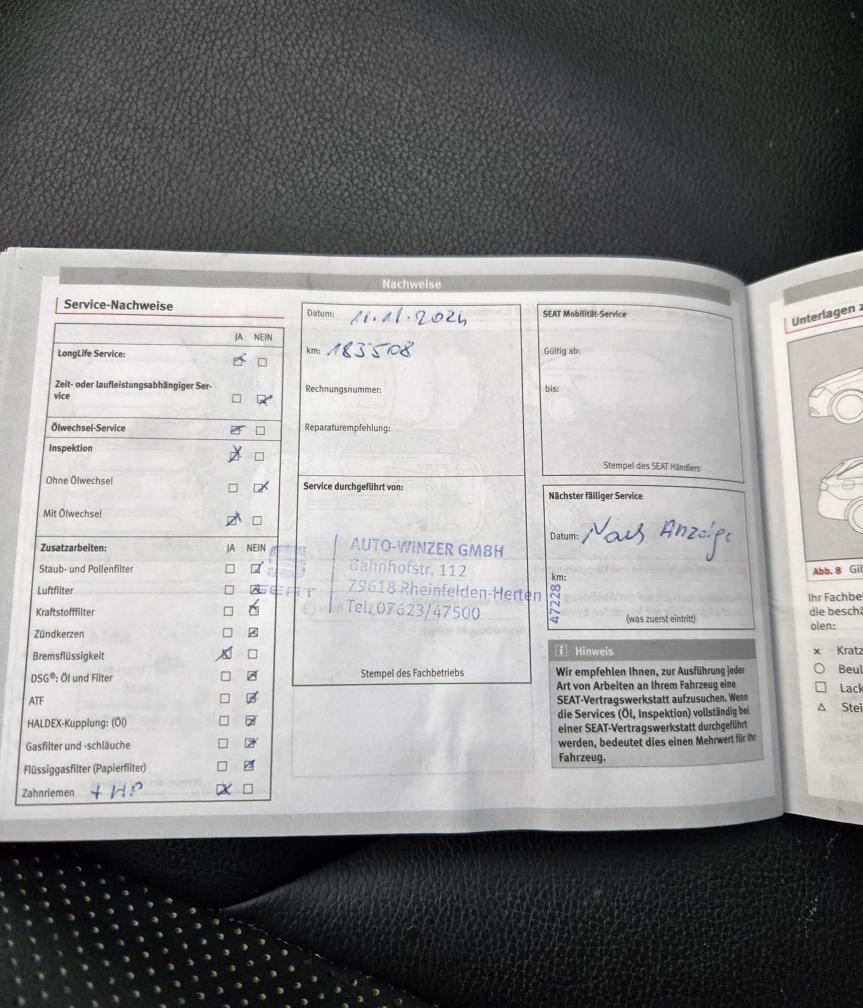 Nachweise
Service-Nachweise
JA NEIN
LongLife Service:
Zeit- oder laufleistungsabhängiger Ser-
vice
Ölwechsel-Service
Inspektion
Ohne Ölwechsel
Mit Ölwechsel
Zusatzarbeiten: JA NEIN
Staub- und Pollenfilter
Luftfilter
Kraftstofffilter
Zündkerzen
Bremsflüssigkeit
DSG®: Öl und Filter
ATF
HALDEX-Kupplung: (Öl)
Gasfilter und -schläuche
Flüssiggasfilter (Papierfilter)
Zahnriemen
Datum: 11.11.2024
km: 183508
Rechnungsnummer:
Reparaturempfehlung:
Service durchgeführt von:
SEAT
AUTO-WINZER GMBH
Bahnhofstr. 112
79618 Rheinfelden-Herten
Tel. 07623/47500
47228
Stempel des Fachbetriebs
SEAT Mobilität-Service
Gültig ab:
bis:
Stempel des SEAT Händlers
Nächster fälliger Service
Datum: Nach Anzeige
km:
(was zuerst eintritt)
i Hinweis
Wir empfehlen Ihnen, zur Ausführung jeder
Art von Arbeiten an Ihrem Fahrzeug eine
SEAT-Vertragswerkstatt aufzusuchen. Wenn
die Services (Öl, Inspektion) vollständig bei
einer SEAT-Vertragswerkstatt durchgeführt
werden, bedeutet dies einen Mehrwert für Ihr
Fahrzeug.
Unterlagen
Abb. 8
Ihr Fachbe
die beschä
olen:
x Kratz
Beul
Lack
Stei